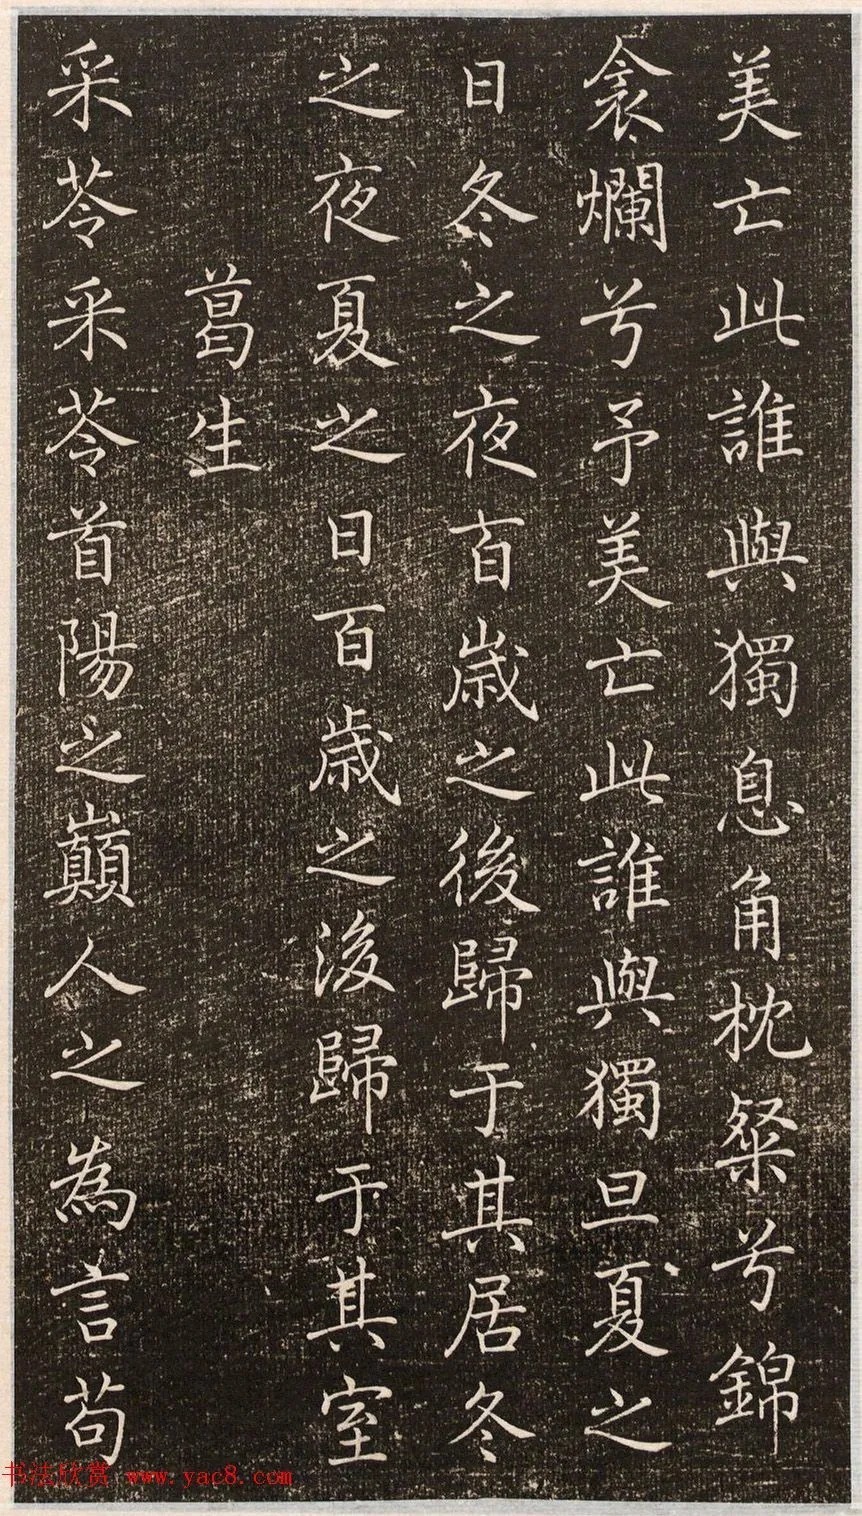 美亡此誰與獨息角枕粲兮錦
衾爛兮予美亡此誰與獨旦夏之
日冬之夜百歲之後歸于其居冬
之夜夏之日百歲之後歸于其室
葛生
采苓采苓首陽之巔人之為言苟
书法欣赏 www.yac8.com